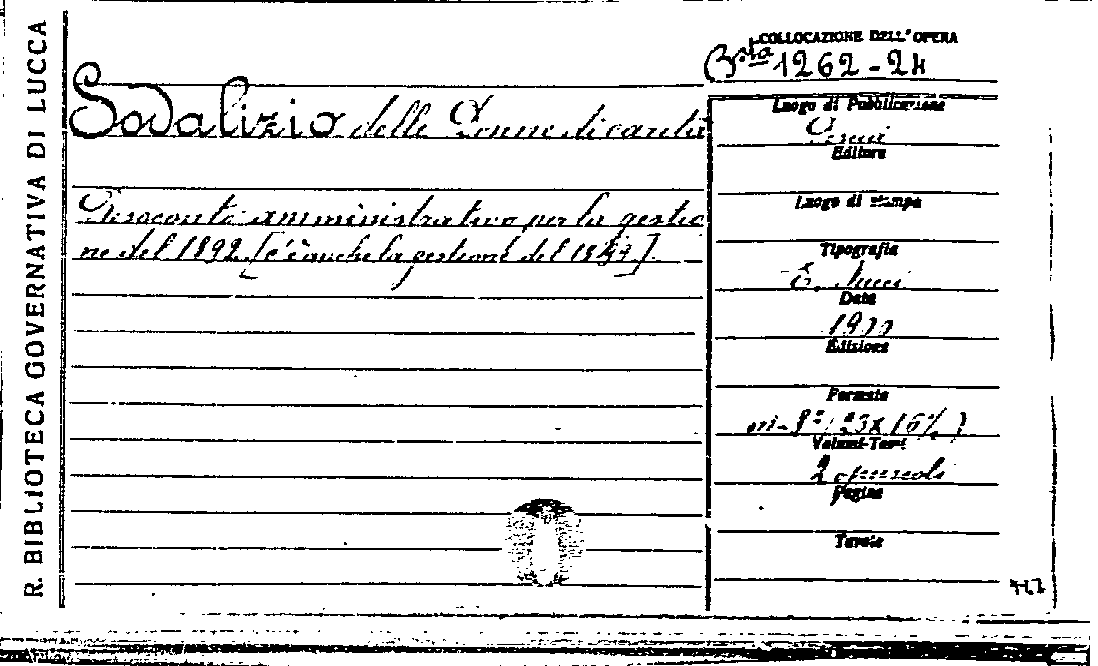 R. BIBLIOTECA GOVERNATIVA DI LUCCA
COLLOCAZIONE DELL'OPERA
Bsta 1262-24
Sodalizio delle Donne di carità
Resoconto amministrativo per la gestio
ne del 1892 [c'è anche la gestione del
Luogo di Pubblicazione
Editore
Luogo di stampa
Tipografia
Data
Edizione
Formato
in-8°
Volumi-Tomi
2 opuscoli
Pagine
Tavole